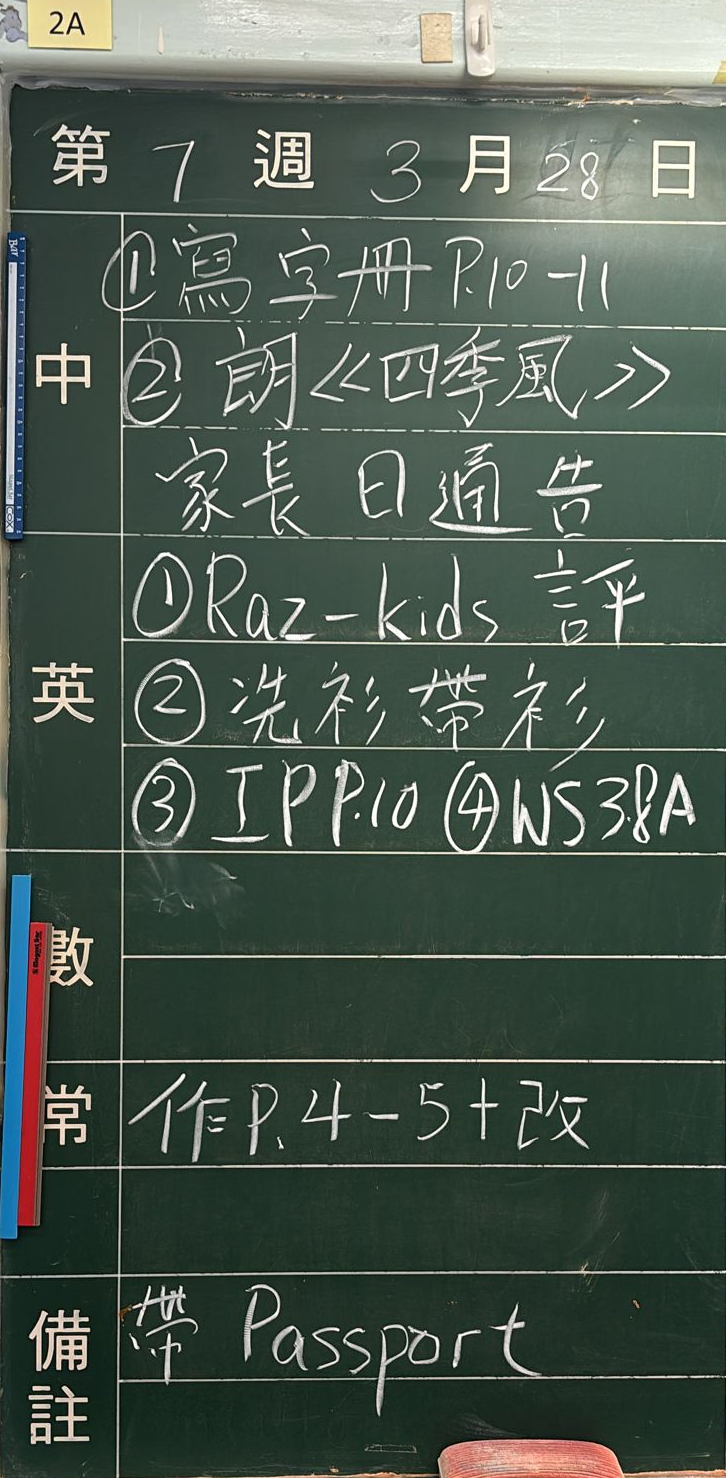 2A
第 7 週 3 月 28 日
中
① 寫字冊 P.10-11
② 朗《四季風》
家長日通告
英
① Raz-kids 評
② 洗衫帶衫
③ IP P.10 ④ WS3.8A
數
常
作 P.4-5+改
備註
帶 Passport